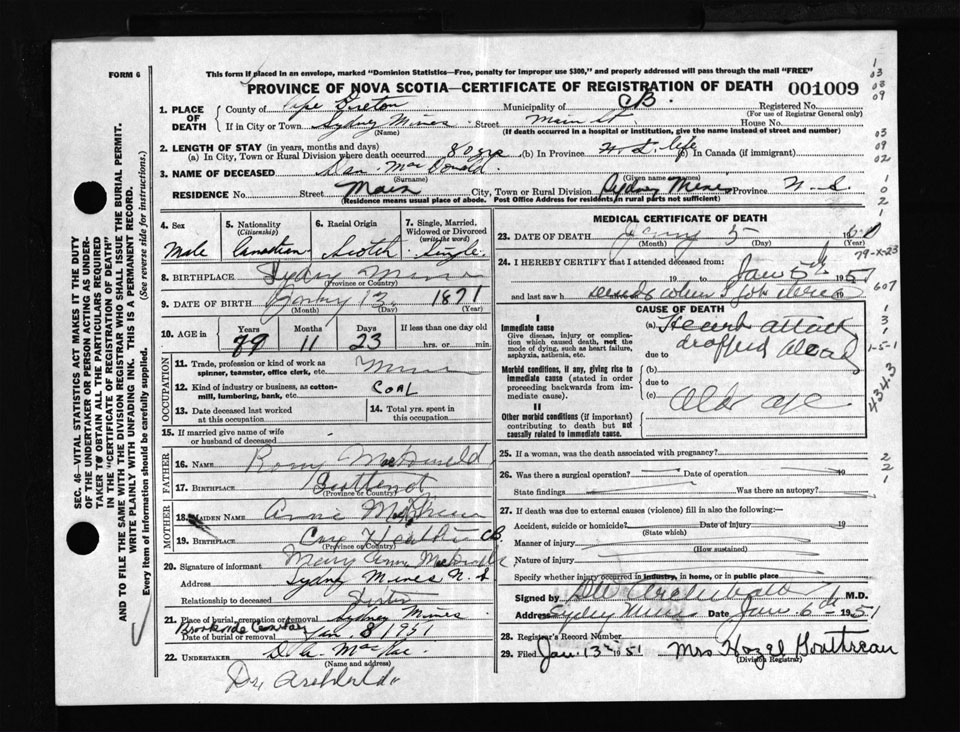 FORM 6
This form if placed in an envelope, marked "Dominion Statistics—Free, penalty for improper use $300," and properly addressed will pass through the mail "FREE"
PROVINCE OF NOVA SCOTIA—CERTIFICATE OF REGISTRATION OF DEATH 001009
1. PLACE OF DEATH County of Cape Breton Municipality of C.B. Registered No.
(For use of Registrar General only)
If in City or Town Sydney Mines Street Main St. House No.
(Name) (If death occurred in a hospital or institution, give the name instead of street and number)
2. LENGTH OF STAY (in years, months and days)
(a) In City, Town or Rural Division where death occurred 80 yrs (b) In Province life (c) In Canada (if immigrant)
3. NAME OF DECEASED Dan MacDonald
(Surname) (Given name or names)
RESIDENCE No. Street Main City, Town or Rural Division Sydney Mines Province N.S.
(Residence means usual place of abode. Post Office Address for residents in rural parts not sufficient)
4. Sex 5. Nationality (Citizenship) 6. Racial Origin 7. Single, Married, Widowed or Divorced (write the word)
Male Canadian Scotch Single
8. BIRTHPLACE Sydney Mines
(Province or Country)
9. DATE OF BIRTH 13 1871
(Month) (Day) (Year)
10. AGE in Years Months Days If less than one day old
79 11 23 hrs. or min.
OCCUPATION
11. Trade, profession or kind of work as spinner, teamster, office clerk, etc. Miner
12. Kind of industry or business, as cotton-mill, lumbering, bank, etc. Coal
13. Date deceased last worked at this occupation 14. Total yrs. spent in this occupation
15. If married give name of wife or husband of deceased
FATHER
16. NAME Rory MacDonald
17. BIRTHPLACE
(Province or Country)
MOTHER
18. MAIDEN NAME Annie
19. BIRTHPLACE C.B.
(Province or Country)
20. Signature of informant Mary Ann MacDonald
Address Sydney Mines N.S.
Relationship to deceased Sister
21. Place of burial, cremation or removal Sydney Mines
Brookside Cemetery
Date of burial or removal Jan. 8 1951
22. UNDERTAKER D. A.
(Name and address)
Dr. Archibald
MEDICAL CERTIFICATE OF DEATH
23. DATE OF DEATH 5 19
(Month) (Day) (Year)
24. I HEREBY CERTIFY that I attended deceased from
19 to Jan 5th 1951
and last saw h dead when I got there 19
CAUSE OF DEATH
I
Immediate cause (a) Heart attack
Give disease, injury or complication which caused death, not the mode of dying, such as heart failure, asphyxia, asthenia, etc. due to dropped dead
Morbid conditions, if any, giving rise to immediate cause (stated in order proceeding backwards from immediate cause). (b)
due to
(c) Old age
II
Other morbid conditions (if important) contributing to death but not causally related to immediate cause.
25. If a woman, was the death associated with pregnancy?
26. Was there a surgical operation? Date of operation 19
State findings Was there an autopsy?
27. If death was due to external causes (violence) fill in also the following:—
Accident, suicide or homicide? Date of injury 19
(State which)
Manner of injury
(How sustained)
Nature of injury
Specify whether injury occurred in industry, in home, or in public place
Signed by D W Archibald M.D.
Address Sydney Mines Date Jan. 6th 1951
28. Registrar's Record Number
29. Filed Jan. 13th 1951 Mrs Hazel
(Division Registrar)
SEC. 46—VITAL STATISTICS ACT MAKES IT THE DUTY
OF THE UNDERTAKER OR PERSON ACTING AS UNDER-
TAKER TO OBTAIN ALL THE PARTICULARS REQUIRED
IN THE "CERTIFICATE OF REGISTRATION OF DEATH"
AND TO FILE THE SAME WITH THE DIVISION REGISTRAR WHO SHALL ISSUE THE BURIAL PERMIT.
WRITE PLAINLY WITH UNFADING INK. THIS IS A PERMANENT RECORD.
Every item of information should be carefully supplied. (See reverse side for instructions.)
1
03
03
09
03
09
02
1
0
2
1
79-X-23
607
1
3
1
1-5-1
4343
2
2
1